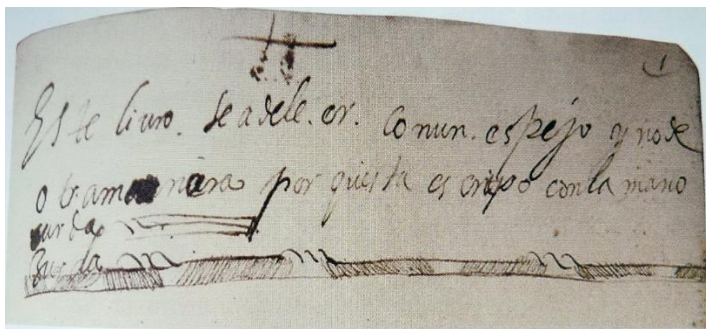 Este liuro. se adele.er. conun. espejo y node
otramanera por questa escripo conla mano
surda
Zurda